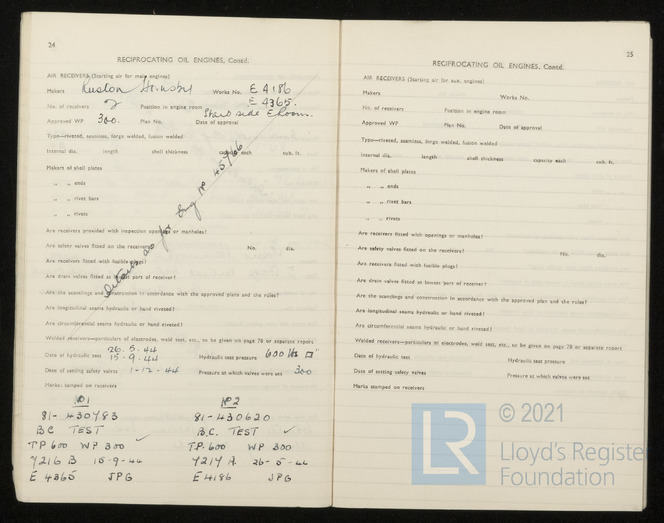 24
RECIPROCATING OIL ENGINES, Contd.
AIR RECEIVERS (Starting air for main engines)
Makers Ruston Hornsby Works No. E 4186
E 4365.
No. of receivers 2 Position in engine room Starb side E Room.
Approved WP 300. Plan No. Date of approval
Type—riveted, seamless, forge welded, fusion welded
Internal dia. length shell thickness capacity each cub. ft.
Makers of shell plates
„ „ ends
„ „ rivet bars
„ „ rivets
Are receivers provided with inspection openings or manholes?
Are safety valves fitted on the receivers? No. dia.
Are receivers fitted with fusible plugs?
Are drain valves fitted at lowest part of receiver?
Are the scantlings and construction in accordance with the approved plans and the rules?
Are longitudinal seams hydraulic or hand riveted?
Are circumferential seams hydraulic or hand riveted?
Details as for Eng No 45766
Welded receivers—particulars of electrodes, weld test, etc., to be given on page 78 or separate report
26.5.44
Date of hydraulic test 15-9.44 Hydraulic test pressure 600 lbs □"
Date of setting safety valves 1-12-44 Pressure at which valves were set 300
Marks stamped on receivers
No 1
81-430783
BC TEST
TP 600 WP 300 ✓
7216 B 15-9-44
E 4365 JPG
No 2
81-430620
B.C. TEST ✓
TP. 600 WP 300
7217 A. 26-5-44
E 4186 JPG
25
RECIPROCATING OIL ENGINES, Contd.
AIR RECEIVERS (Starting air for aux. engines)
Makers Works No.
No. of receivers Position in engine room
Approved WP Plan No. Date of approval
Type—riveted, seamless, forge welded, fusion welded
Internal dia. length shell thickness capacity each cub. ft.
Makers of shell plates
„ „ ends
„ „ rivet bars
„ „ rivets
Are receivers fitted with openings or manholes?
Are safety valves fitted on the receivers? No. dia.
Are receivers fitted with fusible plugs?
Are drain valves fitted at lowest part of receiver?
Are the scantlings and construction in accordance with the approved plan and the rules?
Are longitudinal seams hydraulic or hand riveted?
Are circumferential seams hydraulic or hand riveted?
Welded receivers—particulars of electrodes, weld test, etc., to be given on page 78 or separate report
Date of hydraulic test Hydraulic test pressure
Date of setting safety valves Pressure at which valves were set
Marks stamped on receivers
LR
© 2021
Lloyd's Register
Foundation